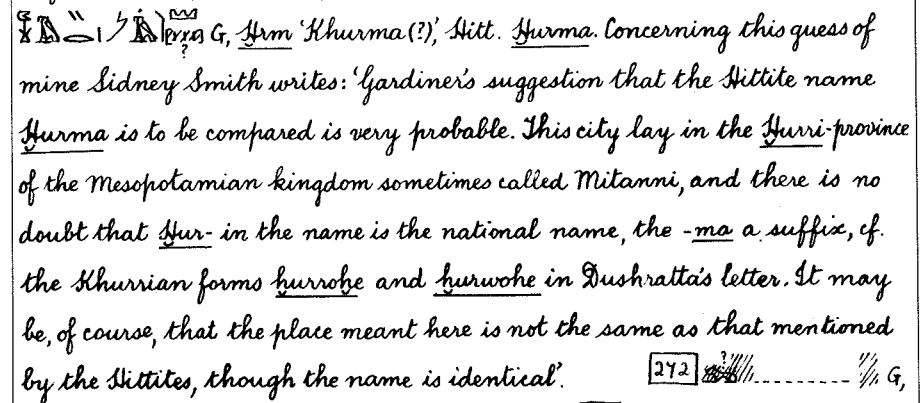 G, Ḫrm ‘Khurma(?)’, Hitt. Ḫurma. Concerning this guess of
mine Sidney Smith writes: ‘Gardiner's suggestion that the Hittite name
Ḫurma is to be compared is very probable. This city lay in the Ḫurri-province
of the Mesopotamian kingdom sometimes called Mitanni, and there is no
doubt that Ḫur- in the name is the national name, the -ma a suffix, cf.
the Khurrian forms ḫurroḫe and ḫurwoḫe in Dushratta's letter. It may
be, of course, that the place meant here is not the same as that mentioned
by the Hittites, though the name is identical’. 272 ? ---------- G,